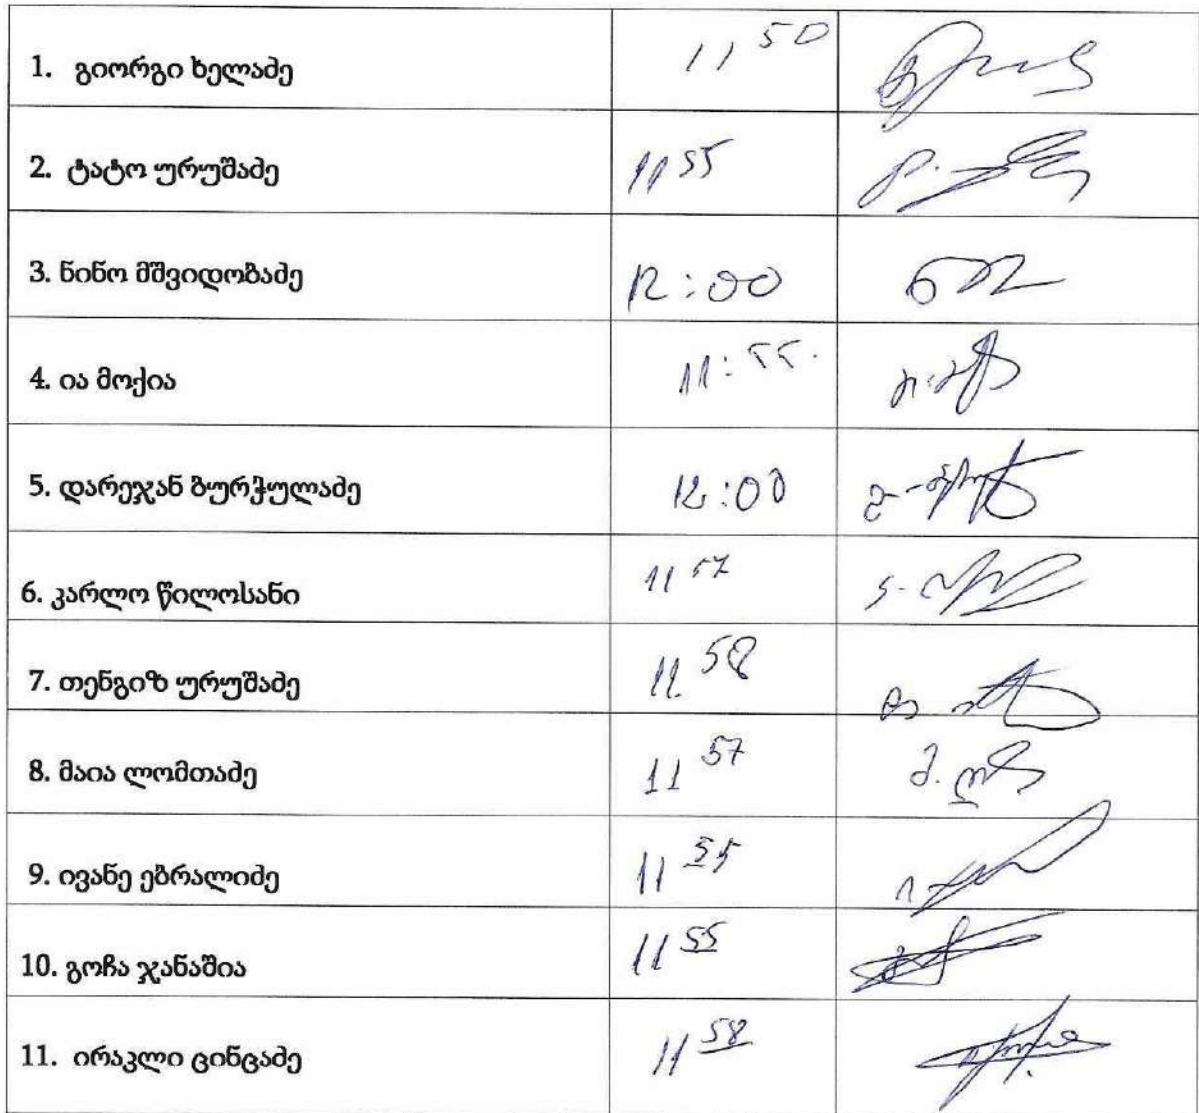 1. გიორგი ხელაძე 11 50
2. ტატო ურუშაძე 11 55
3. ნინო მშვიდობაძე 12:00
4. ია მოქია 11:55.
5. დარეჯან ბურჭულაძე 12:00
6. კარლო წილოსანი 11 57
7. თენგიზ ურუშაძე 11 58
8. მაია ლომთაძე 11 57
9. ივანე ებრალიძე 11 55
10. გოჩა ჯანაშია 11 55
11. ირაკლი ცინცაძე 11 58